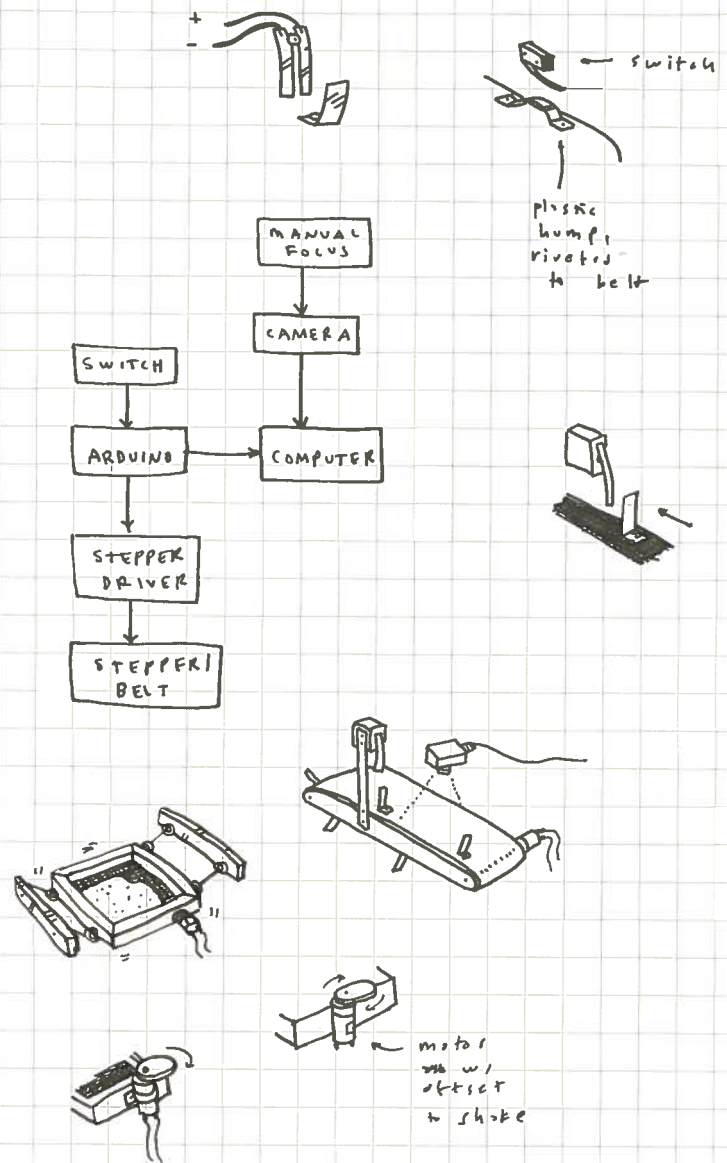 +
-
switch
plastic
hump,
riveted
to belt
MANUAL
FOCUS
CAMERA
SWITCH
ARDUINO
COMPUTER
STEPPER
DRIVER
STEPPER/
BELT
motor
w/
offset
to shake